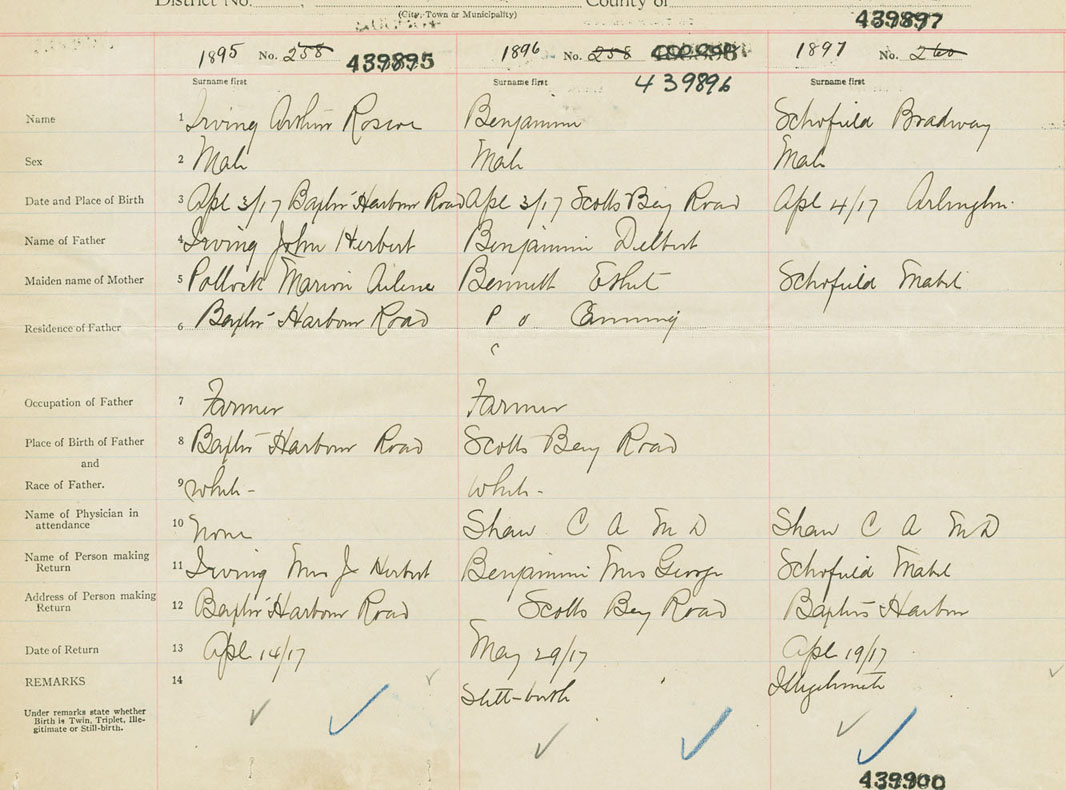 District No. County of
(City, Town or Municipality)
439897
1895 No. 258 439895 1896 No. 258 1897 No. 260
Surname first Surname first 439896 Surname first
Name 1 Irving Arthur Roscoe Benjamin Schofield Bradway
Sex 2 Male Male Male
Date and Place of Birth 3 Apl 3/17 Baxters Harbour Road Apl 3/17 Scotts Bay Road Apl 4/17 Arlington.
Name of Father 4 Irving John Herbert Benjamin Delbert
Maiden name of Mother 5 Pollock Marion Ailene Bennett Ethel Schofield Mabel
Residence of Father 6 Baxters Harbour Road P O Canning
Occupation of Father 7 Farmer Farmer
Place of Birth of Father 8 Baxters Harbour Road Scotts Bay Road
and
Race of Father. 9 White - White -
Name of Physician in
attendance 10 None Shaw C A M D Shaw C A M D
Name of Person making
Return 11 Irving Mrs J Herbert Benjamin Mrs George Schofield Mabel
Address of Person making
Return 12 Baxters Harbour Road Scotts Bay Road Baxters Harbor
Date of Return 13 Apl 14/17 May 29/17 Apl 19/17
REMARKS 14 Still-birth Illegitimate
Under remarks state whether
Birth is Twin, Triplet, Ille-
gitimate or Still-birth.
439900